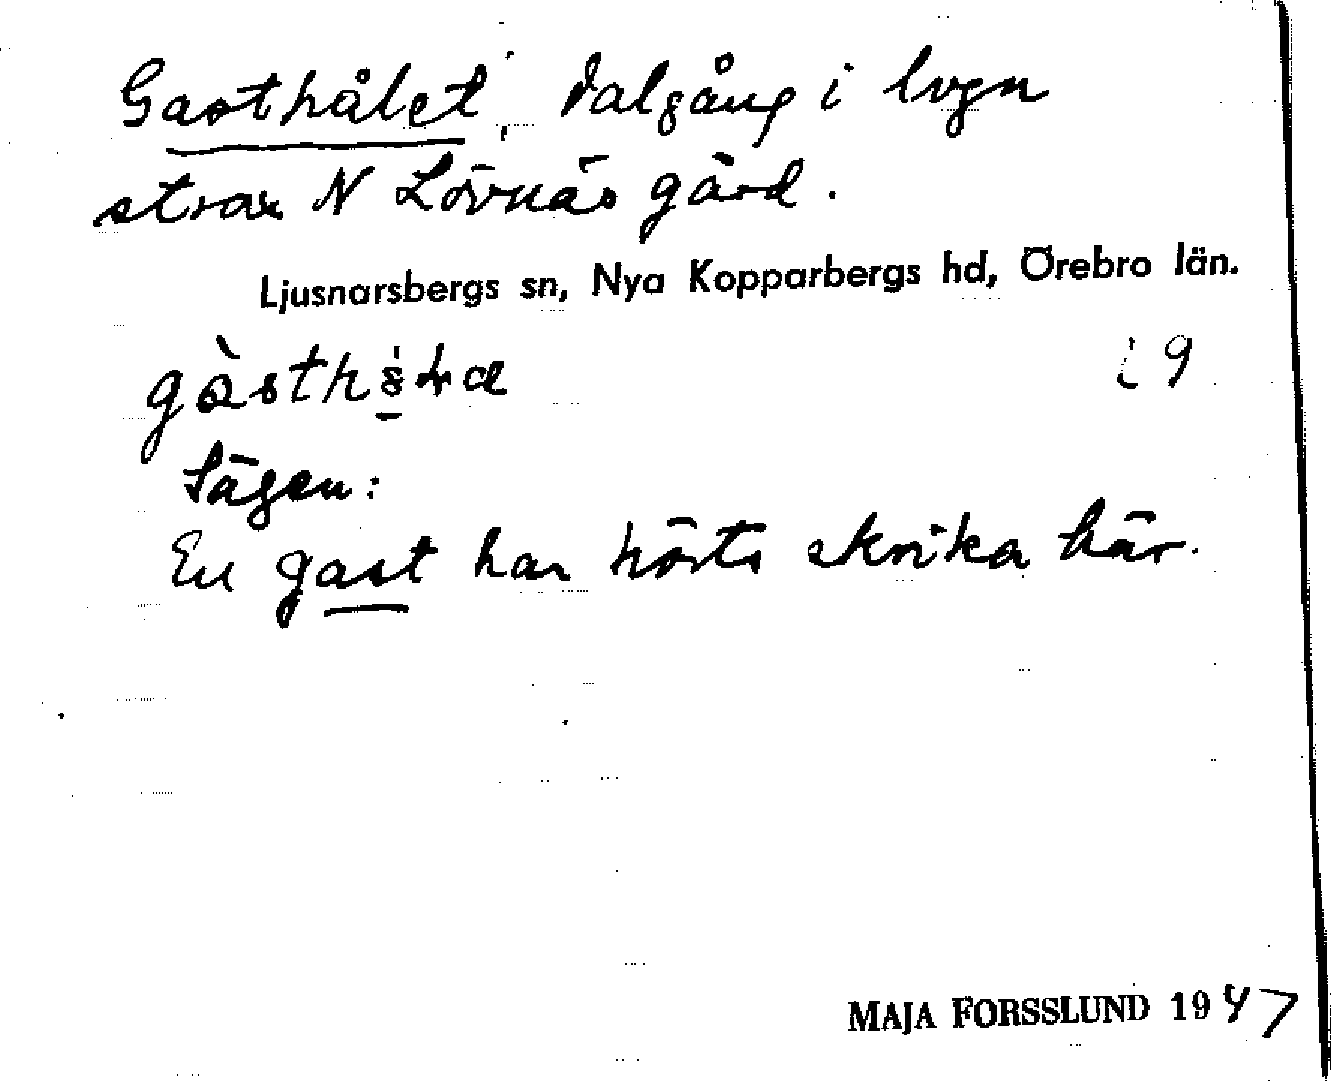 Gasthålet, dalgång i byn
strax N Lövnäs gård.
Ljusnarsbergs sn, Nya Kopparbergs hd, Örebro län.
i 9
Sägen:
En gast har hörts skrika här.
MAJA FORSSLUND 1947